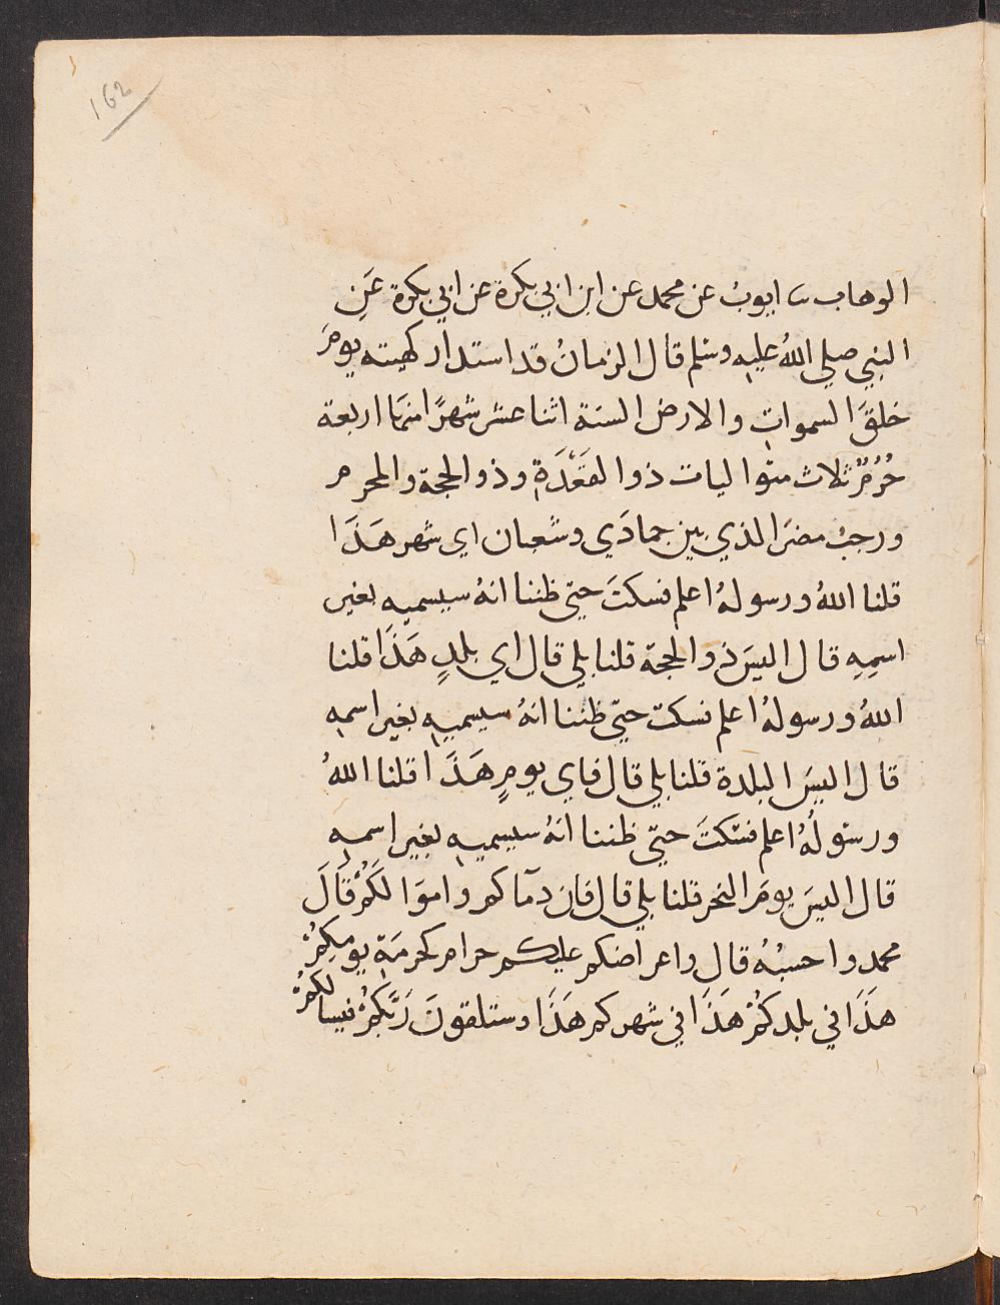 162
الوهاب ثنا ايوبُ عن محمد عن ابن ابي بكرة عن ابي بكرة عَنِ
النبي صلي اللهُ عليه وسلم قال الزمانُ قد استدار كهيته يومَ
خلقَ السمواتِ والارض السنة اثنا عشر شهرًا منها اربعة
حُرُمٌ ثلاث متواليات ذوا لقَعْدَةِ وذو الحجة والمحرم
ورجبُ مضرَ الذي بين جمادَي وشعبان اي شهر هَذَا
قلنا اللهُ ورسولهُ اعلم فسكتَ حتي ظننا انهُ سيسميه بغير
اسمِهِ قال اليسَ ذو الحجة قلنا بلي قال اي بلدٍ هَذَا قلنا
اللهُ ورسولهُ اعلم فسكت حتي ظننا انهُ سيسميه بغير اسمه
قال اليسَ البلدة قلنا بلي قال فاي يومٍ هَذَا قلنا اللهُ
ورسولُهُ اعلم فسكتَ حتي ظننا انهُ سيسميه بغير اسمه
قال اليسَ يومَ النحر قلنا بلي قال فان دمآكم واموَالَكُمْ قَالَ
محمد واحسبُهُ قال واعراضكم عليكم حرام كحرمَةِ يومِكُمْ
هَذَا في بلدكُمْ هَذَا في شهركم هَذَا وستلقونَ رَبَّكُمْ فيسالكُمْ